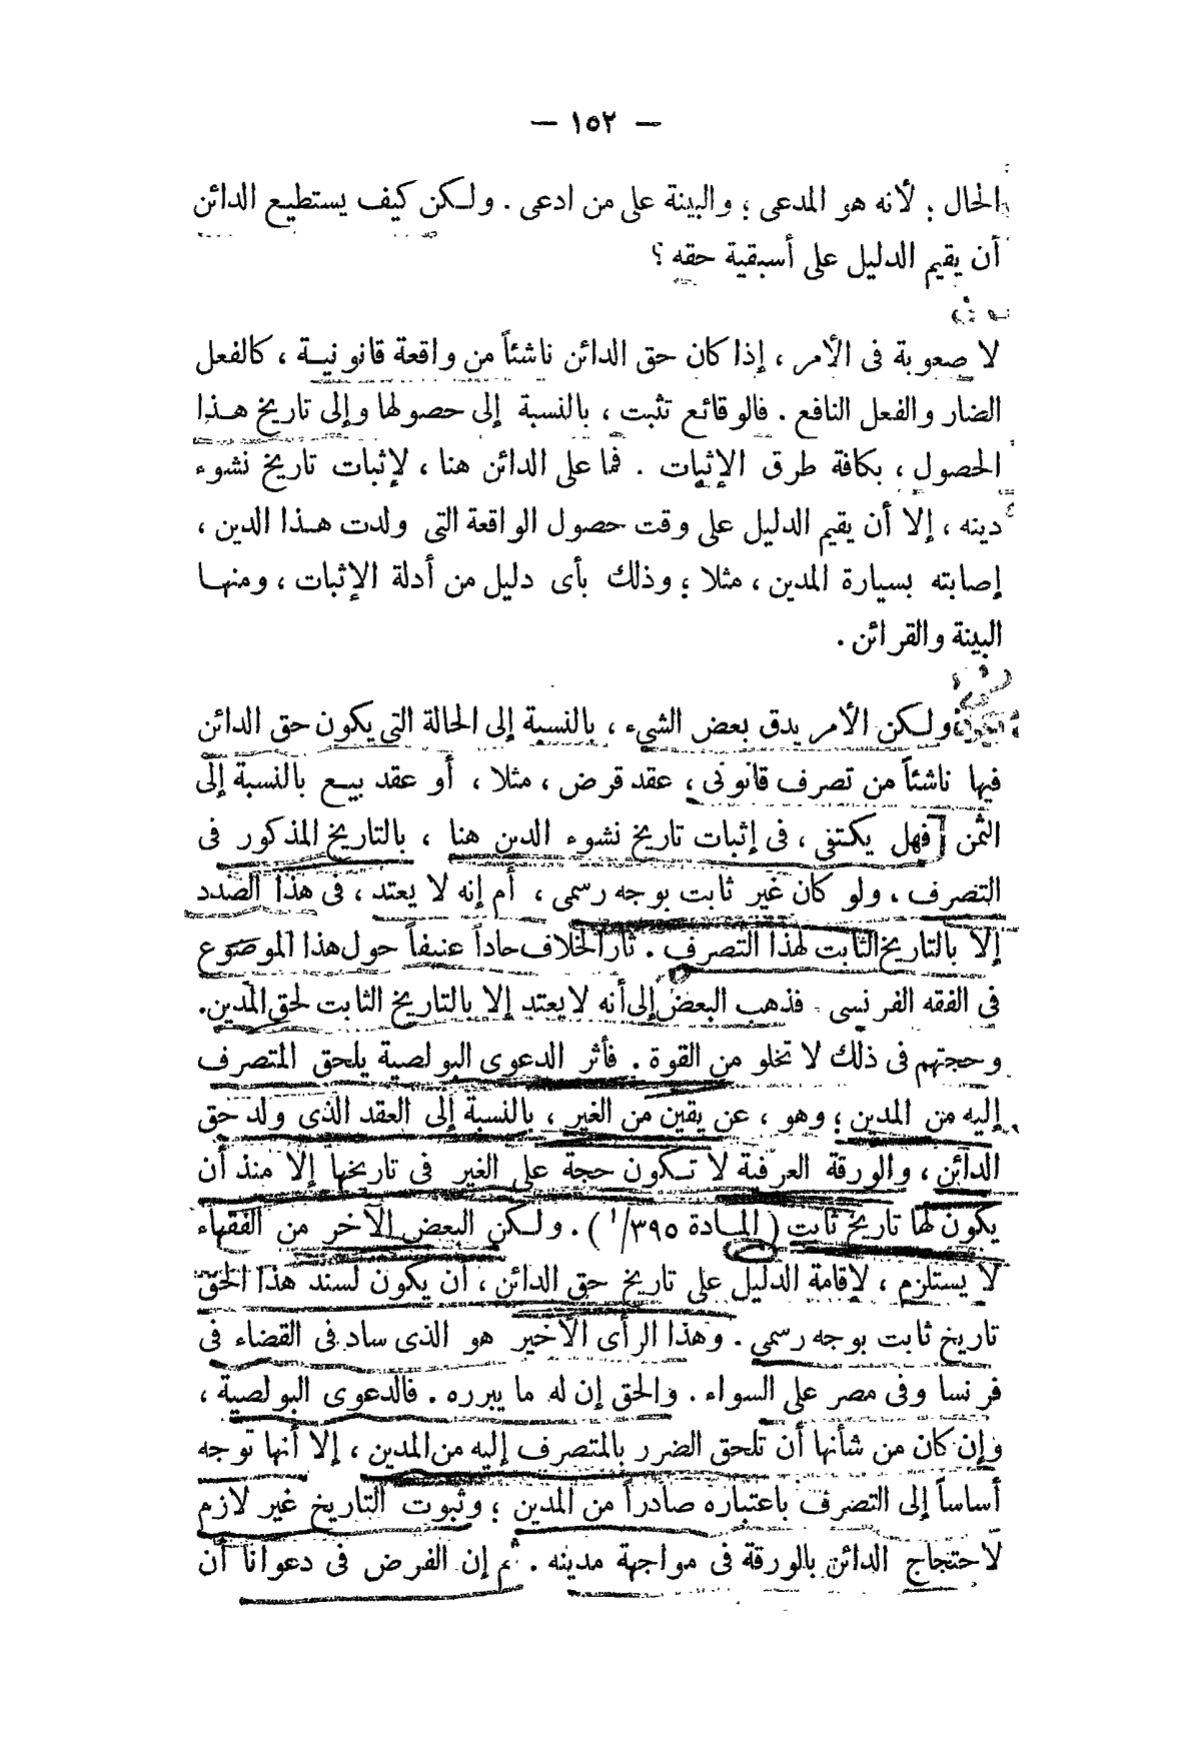 — ١٥٢ —
الحال ؛ لأنه هو المدعى ؛ والبينة على من ادعى . ولكن كيف يستطيع الدائن
أن يقيم الدليل على أسبقية حقه ؟
لا صعوبة فى الأمر ، إذا كان حق الدائن ناشئاً من واقعة قانونية ، كالفعل
الضار والفعل النافع . فالوقائع تثبت ، بالنسبة إلى حصولها وإلى تاريخ هذا
الحصول ، بكافة طرق الإثبات . فما على الدائن هنا ، لإثبات تاريخ نشوء
دينه ، إلا أن يقيم الدليل على وقت حصول الواقعة التى ولدت هذا الدين ،
إصابته بسيارة المدين ، مثلا ؛ وذلك بأى دليل من أدلة الإثبات ، ومنها
البينة والقرائن .
ولكن الأمر يدق بعض الشىء ، بالنسبة إلى الحالة التى يكون حق الدائن
فيها ناشئاً من تصرف قانونى ، عقد قرض ، مثلا ، أو عقد بيع بالنسبة إلى
الثمن فهل يكتفى ، فى إثبات تاريخ نشوء الدين هنا ، بالتاريخ المذكور فى
التصرف ، ولو كان غير ثابت بوجه رسمى ، أم إنه لا يعتد ، فى هذا الصدد
إلا بالتاريخ الثابت لهذا التصرف . ثار الخلاف حاداً عنيفاً حول هذا الموضوع
فى الفقه الفرنسى . فذهب البعض إلى أنه لا يعتد إلا بالتاريخ الثابت لحق المدين.
وحجتهم فى ذلك لا تخلو من القوة . فأثر الدعوى البولصية يلحق المتصرف
إليه من المدين ؛ وهو ، عن يقين من الغير ، بالنسبة إلى العقد الذى ولد حق
الدائن ، والورقة العرفية لا تكون حجة على الغير فى تاريخها إلا منذ أن
يكون لها تاريخ ثابت ( المادة ٣٩٥/١ ) . ولكن البعض الآخر من الفقهاء
لا يستلزم ، لإقامة الدليل على تاريخ حق الدائن ، أن يكون لسند هذا الحق
تاريخ ثابت بوجه رسمى . وهذا الرأى الأخير هو الذى ساد فى القضاء فى
فرنسا وفى مصر على السواء . والحق إن له ما يبرره . فالدعوى البولصية ،
وإن كان من شأنها أن تلحق الضرر بالمتصرف إليه من المدين ، إلا أنها توجه
أساساً إلى التصرف باعتباره صادراً من المدين ؛ وثبوت التاريخ غير لازم
لاحتجاج الدائن بالورقة فى مواجهة مدينه . ثم إن الفرض فى دعوانا أن